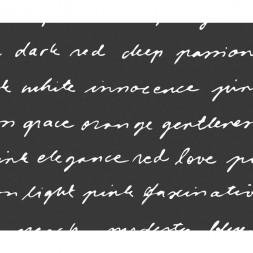 dark red deep passion
white innocence pin
grace orange gentlenes
ink elegance red love p
on light pink fascinati
peach modesty blue